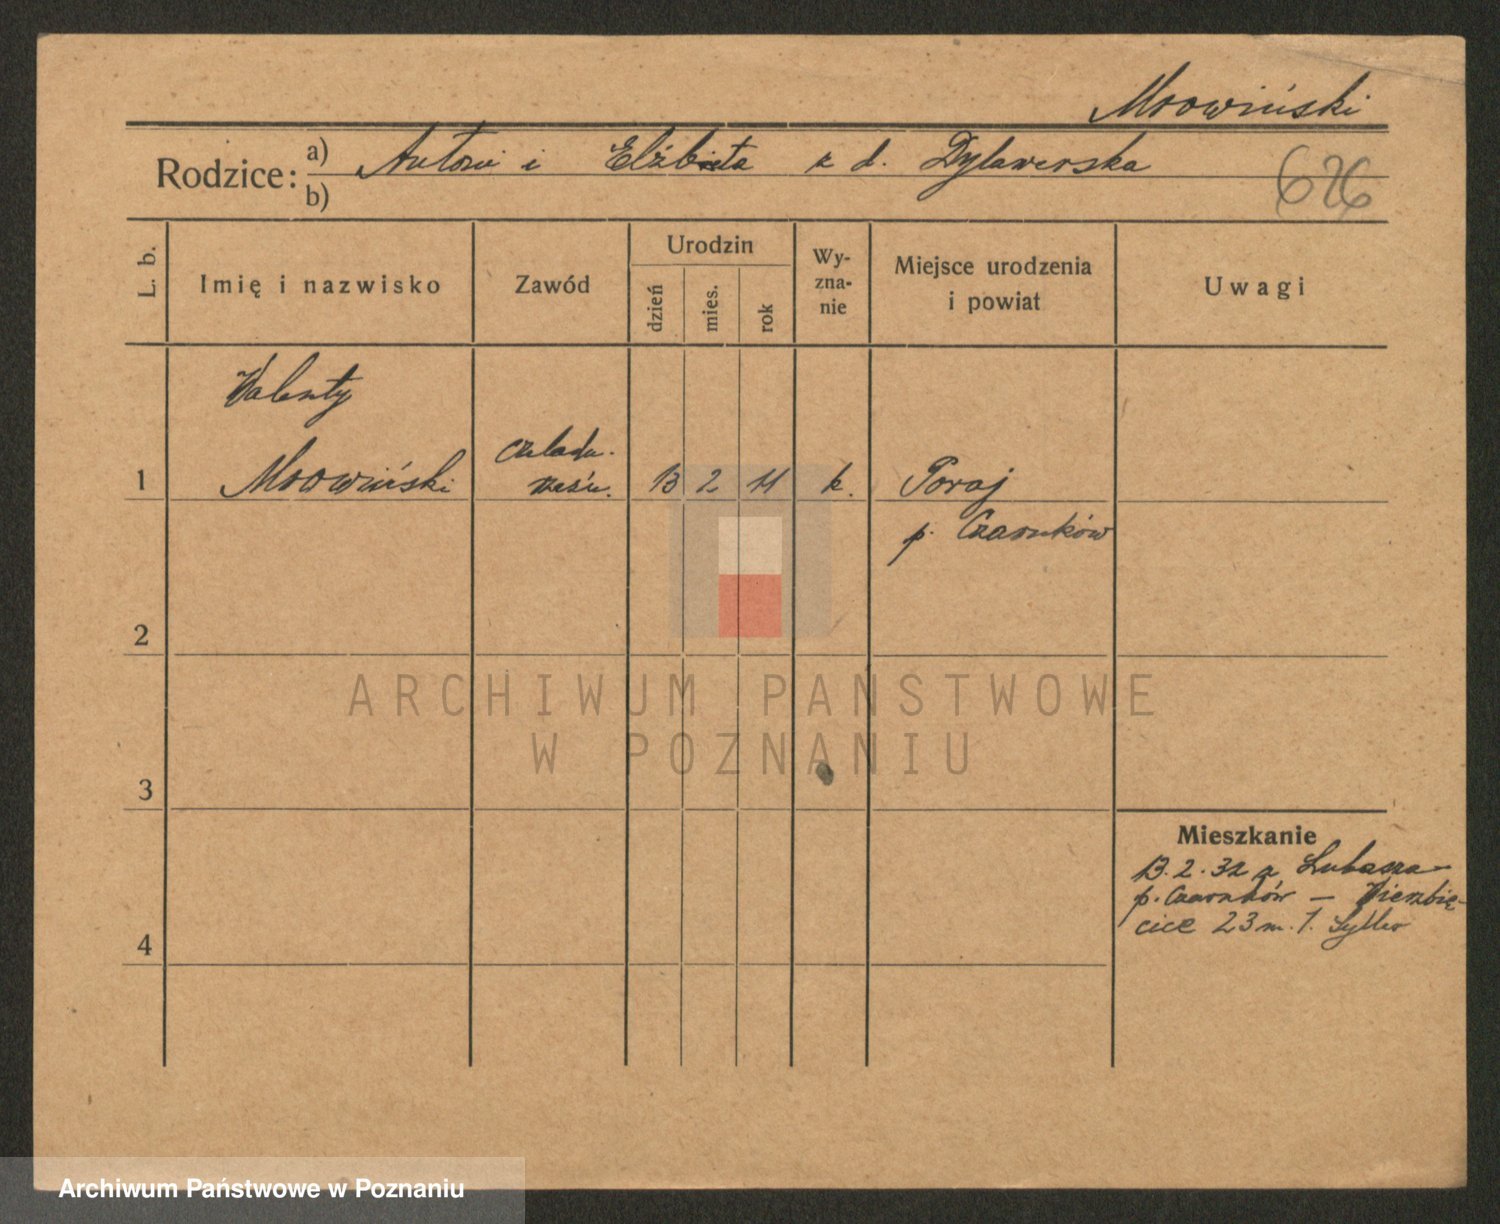 Mrowiński
Rodzice: a) Antoni i Elżbieta z d. Dylawerska
b)
626
L. b.
Imię i nazwisko
Zawód
Urodzin
dzień
mies.
rok
Wy-
zna-
nie
Miejsce urodzenia
i powiat
Uwagi
Walenty
1 Mrowiński czeladn. 13 2 11 k. Poraj
rzeźn.
p. Czarnków
2
ARCHIWUM PAŃSTWOWE
W POZNANIU
3
Mieszkanie
13.2.32 z Lubasza
p. Czarnków – Wierzbię-
4 cice 23 m. 1.
Archiwum Państwowe w Poznaniu